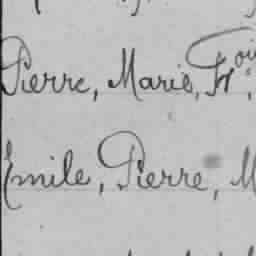 Pierre, Marie, Fr
Emile, Pierre, M